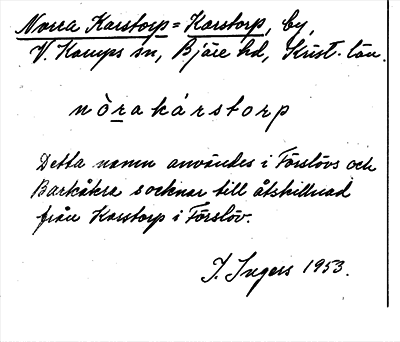 Norra Karstorp = Karstorp, by,
V. Karups sn, Bjäre hd, Krist. län.
nòrakárstorp
Detta namn användes i Förslövs och
Barkåkra socknar till åtskillnad
från Karstorp i Förslöv.
I. Ingers 1953.